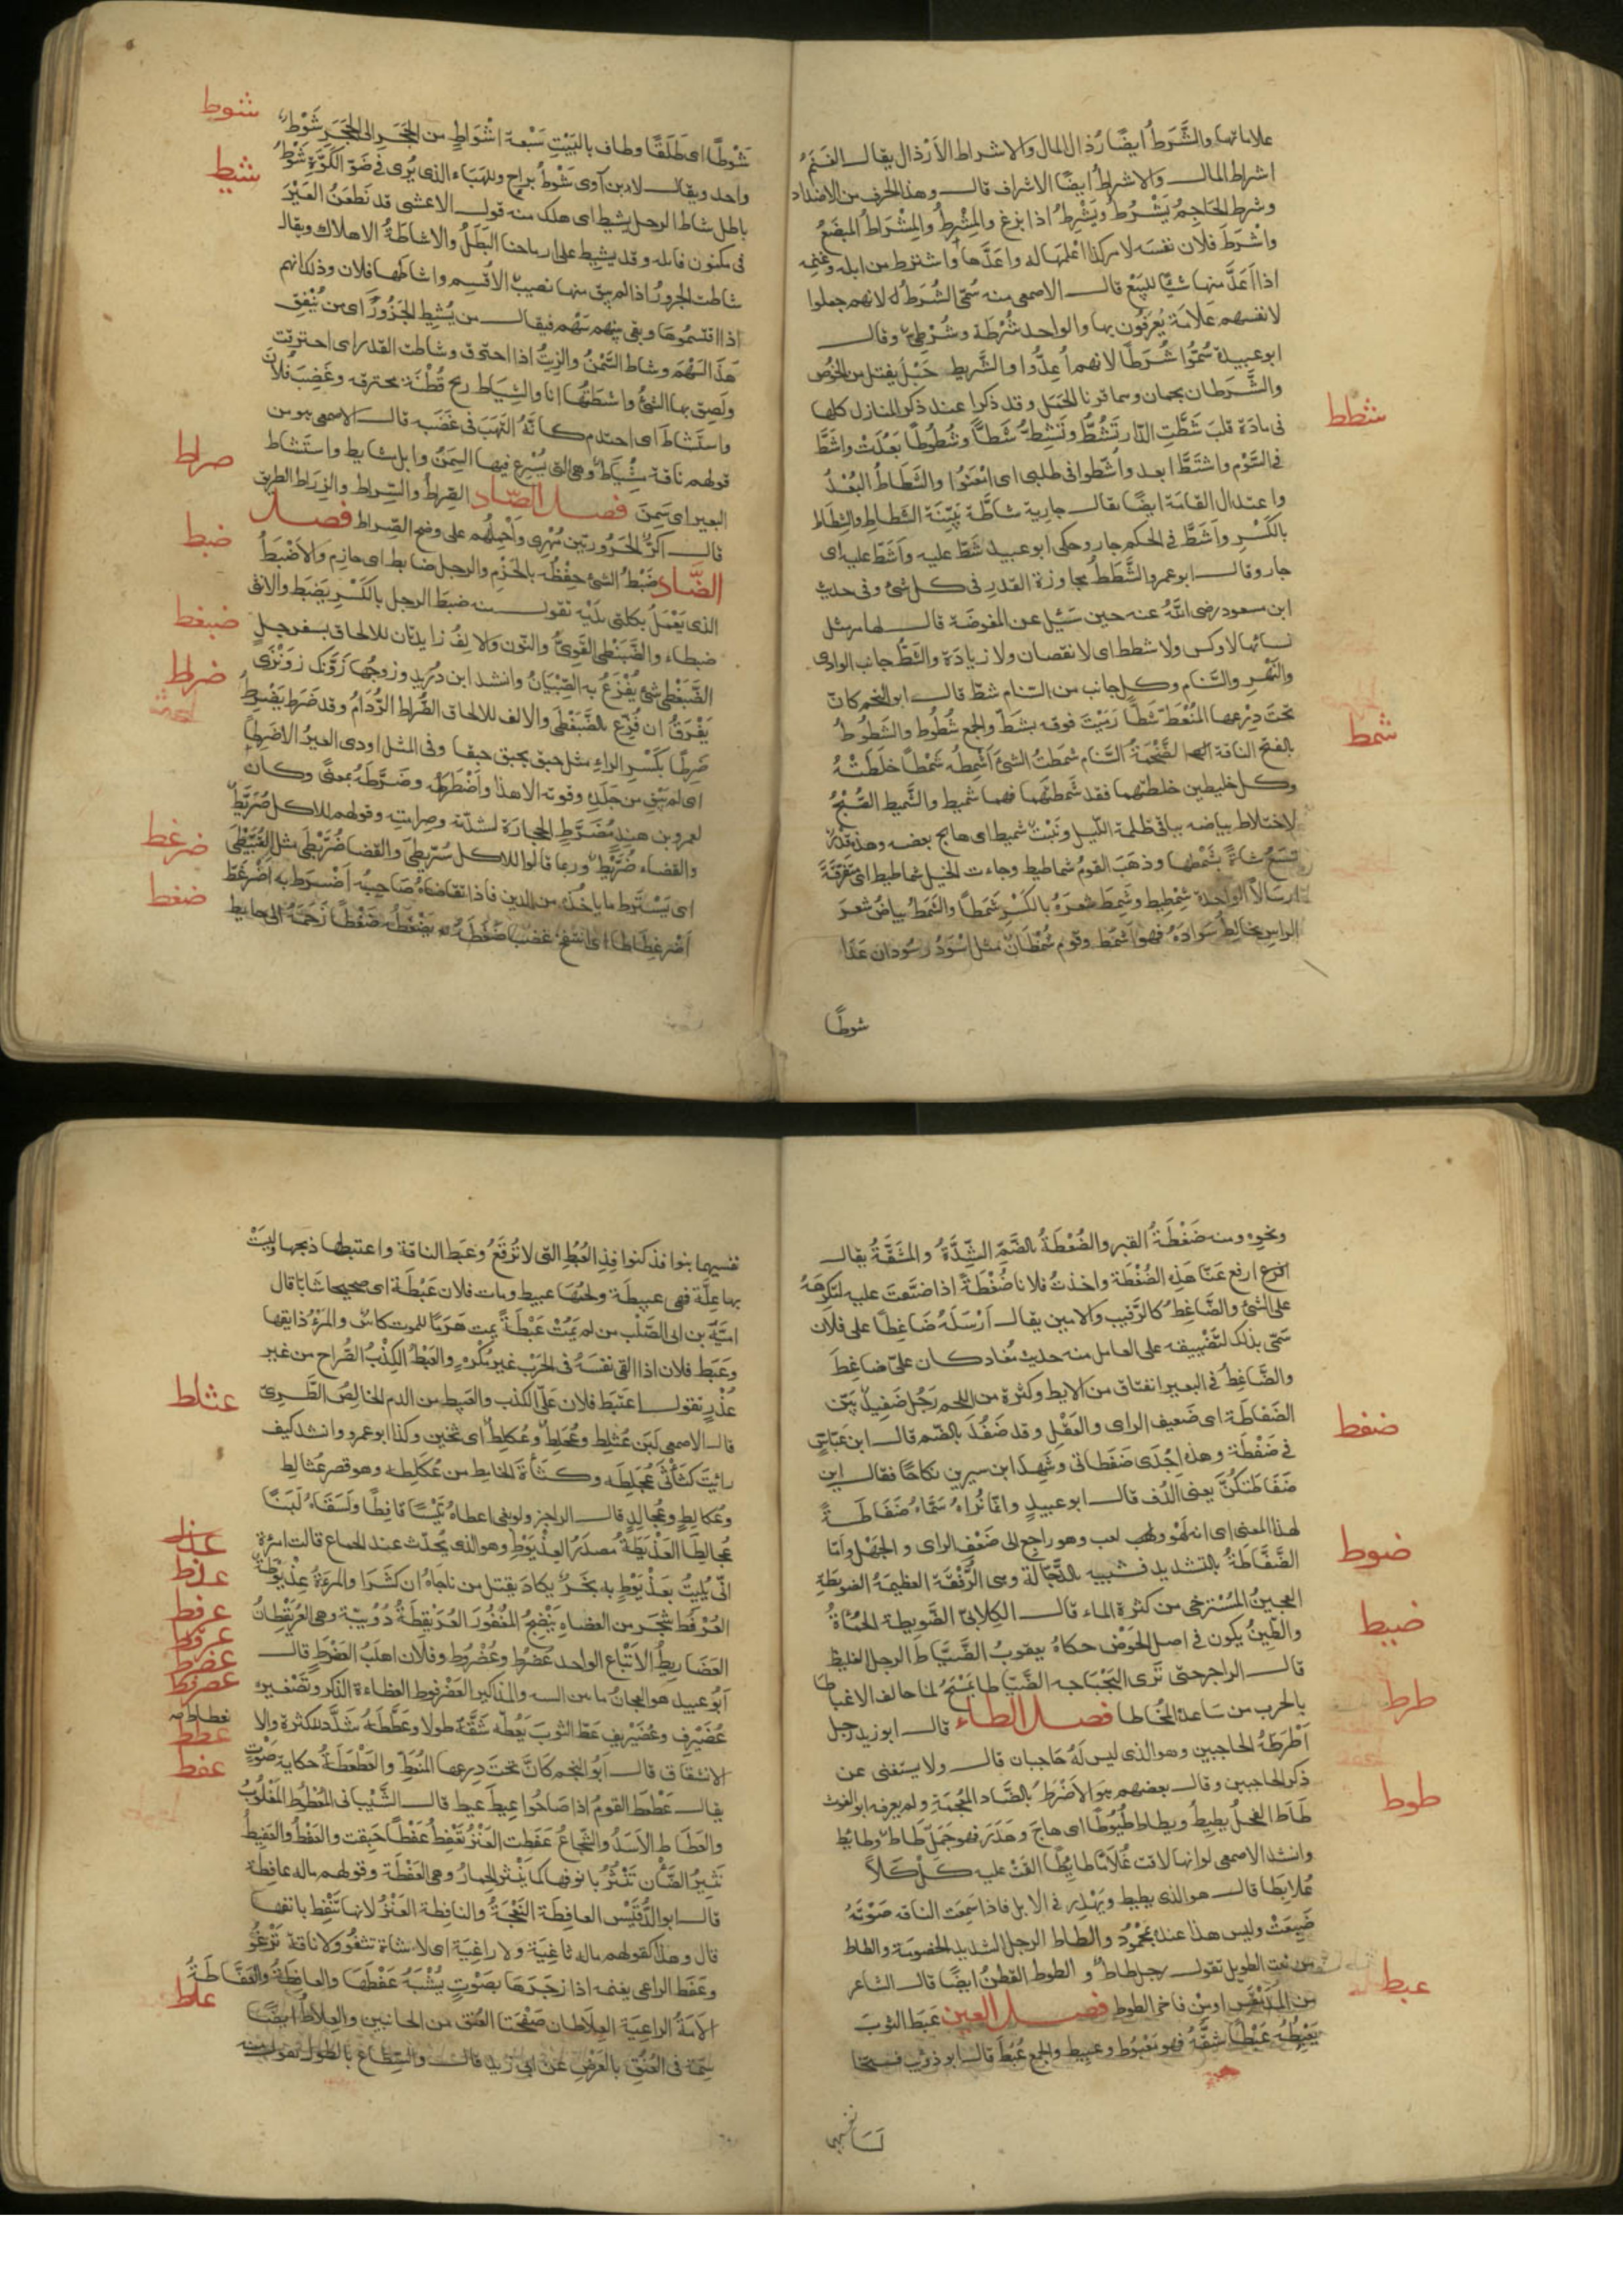 علاماتها والشَّرَطُ ايضًا رُذال المال والاشراط الأرْذال يقال الغنم
اشراط المال والاشراطُ ايضًا الاشراف قال وهذا الحرف من الاضداد
وشرط الحَاجِمُ يَشْرُطُ ويَشْرِطُ اذا بزغ والمِشْرطُ والمِشْرَاطُ المبضَعُ
واشْرَطَ فلان نفسَه لامر كذا اعْلَمَها له واعَدَّها واشترط من ابله وغنمه
اذا اعَدَّ منها شيئًا للبَيْع قال الاصمعى منه سُمّى الشُرَطُ لانهم جعلوا
لانفسهم عَلامَة يُعرَفُون بها والواحد شُرْطَة وشُرْطِىّ وقال
ابو عبيدة سُمّوا شُرَطًا لانهم اُعِدُّوا والشَّريط حَبْل يفتل من الخُوص
والشَّرَطان نجمان وهما قرنا الحَمَل وقد ذكرا عند ذكر المنازل كلها
شطط
فى مادّة قلب شَطَّتِ الدّار تَشُطُّ وتَشِطُّ شَطًّا وشُطُوطًا بَعُدَت واشَطَّ
فى السَّوْم واشتَطَّ ابعد واَشَطّوا فى طلبى اى امْعَنُوا والشَّطَاطُ البُعْدُ
واعتدال القامَة ايضًا يقال جارية شاطَّة بَيّنَة الشَّطاط والشِّطَاط
بالكَسْرِ واَشَطَّ فى الحكم جار وحكى ابو عبيد شَطّ عليه واَشَطّ عليه اى
جار وقال ابو عمرو الشَّطَطُ مجاوزة القدر فى كل شئ وفى حديث
ابن مسعود رضى اللهُ عنه حين سُئِل عن المفوضَة قال لها مهر مثل
نسائها لا وكس ولا شطط اى لا نقصان ولا زيادَة والشَطُّ جانب الوادى
والنَّهْرِ والسَّنام وكل جانب من السّنام شطّ قال ابو النجم كانّ
تحتَ دِرْعها المُنْعَطّ شَطًّا رَمَيْتَ فوقه بشَطّ والجمع شُطُوط والشَطُوطُ
شمط
بالفتح الناقة الضَّخْمَةُ السَّنام شمَطتُ الشئ اَشْمِطُه شَمْطًا خلَطتُهُ
وكل خليطين خلطتهما فقد شَمَطتَهما فهما شَميط والشَّميط الصُّبْحُ
لاختلاط بياضه بباقى ظلمة اللّيل ونَبْتٌ شميط اى هايج بعضه وهذه قدر
تسَعُ شاةً بشَمْطها وذهَبَ القومُ شماطيط وجاءت الخيل شماطيط اى متفَرّقَةً
ارسَالًا الواحد شِمْطِيط وشَمِطَ شعرَهُ بالكَسْر شَمَطًا والشَمَطُ بياضُ شعرَ
الراسِ يخالِطُ سَوادَهُ فهو اَشْمَطُ وقوم شُمْطَانٌ مثل اسْوَدُ وسُودان عَدَا
شوطًا
شوط
شَوْطًا اى طَلَقًا وطاف بالبَيْتِ سَبْعَة اشْوَاطٍ من الحَجَرِ الى الحَجَرِ شَوْطٌ
شيط
واحد ويقال لابن آوى شَوْطُ براحٍ وللهَباء الذى يُرى فى ضَوْ الكَوَّةِ شَوْطُ
باطل شاط الرجل يشيط اى هلك منه قول الاعشى قد نَطعَنُ العَيْرَ
فى مكنون فايله وقد يشيط على ارماحنا البَطَلُ والاشاطَةُ الاهلاك ويقال
شاطت الجزورُ اذا لم يبق منها نصيبٌ الا قُسِم واشاطَها فلان وذلك انهم
اذا اقتَسمُوهَا وبقى بينهم سَهْم فيقال من يُشيط الجَزُورَ اى من يُنْفِق
هَذَا السَّهْمَ وشاط السَّمْنُ والزيتُ اذا احترق وشاطت القدر اى احترقت
ولَصِق بها الشئُ واشطتُها انا والشِياط ريح قُطْنَة محترقه وغَضِبَ فلانٌ
واستَشَاطَ اى احتدم كانَّهُ التَهَبَ فى غَضَبه قال الاصمعى هو من
قولهم ناقة مِشْيَاطٌ وهى التى يُسْرع فيها السِمَنُ وابل مشاييط واستشاط
صراط
البعير اى سَمِنَ فصل الصّاد الصِّراطُ والسّراط والزراط الطريق
قال اكُرُّ على الحَرُورِيّين مُهْرِى واَحْمِلُهُم على وضح الصّراط فصل
ضبط
الضَّاد ضَبْطُ الشئ حِفْظُه بالحَزْم والرجل ضابط اى حازم والأضْبَطُ
الذى يَعْمَلُ بكلتى يدَيْه تقول منه ضبِطَ الرجل بالكَسْرِ يَضبَط والانثى
ضبغط
ضبطاء والضَّبَنْطَى القَوِىُّ والنّون والالفُ زايدتان للالحاق بسفرجلٍ
الضَّبَغْطَى شئ يُفْزَعُ به الصِّبْيَانُ وانشد ابن دُرَيد وزوجُها زَوَنْزَك زَوَنْزَى
ضرط
يَفْرَقُ ان فُزّع بالضَّبَغْطَى والالف للالحاق الضُراط الرُّدَامُ وقد ضَرَط يَضْرِطُ
ضَرِطًا بكَسْرِ الراءِ مثل حبَق يحبق حبقا وفى المثل اودى العيرُ الا ضَرِطًا
اى لم يَبْقِ من جَلَدِه وقوته الا هذا واَضْطَرَطَهُ وضَرَّطَهُ بمعنًى وكان
لعمرو بن هندٍ مُضَرّط الحِجارَة لشدّته وصِرامتِه وقولهم للاكل ضُرَّيْطٌ
ضرغط
والقضاء ضُرَّيْط وربما قالوا للاكل سُرّيطَى والقضا ضُرَّيْطَى مثل القُبَّيْطَى
ضغط
اى يَسْتَرِط ما ياخُذه من الدين فاذا تقاضاهُ صاحِبُه اَضْرَط به اضْرَغَطّ
اضْرِغْطاطا اى انتفخ غضَبا ضَغَطَهُ يَضْغَطُه ضَغْطًا زَحَمَهُ الى حايط
ونحوِه ومنه ضَغْطَةُ القبر والضُغْطَةُ بالضَّمّ الشِّدَّةُ والمشَقَّةُ يقال
ارفع عَنّا هَذِه الضُغْطة واخذتُ فلانا ضُغْطَةً اذا ضيَّقتَ عليه لتكرهَهُ
على الشئ والضَّاغِطُ كالرَّقيب والامين يقال اَرْسَلَهُ ضَاغِطًا على فلان
سمّى بذلك لتَضْييقه على العامل منه حديث مُعاذ كان علىّ ضاغِطَ
والضَّاغِطُ فى البعير انفتاق من الابط وكثرة من اللحم رَجُل ضَفيطٌ بيّن
ضفط
الضَفاطَة اى ضَعيف الراى والعَقْل وقد ضَفُطَ بالضّم قال ابن عَبّاسٍ
فى ضَفْطَة وهذه اِحْدَى ضَفَطاتى وشَهِدَ ابن سيرين نكاحًا فقال اين
ضَفَاطتكُنَّ يعنى الدُف قال ابو عبيدٍ وانما نُراهُ سَمَّاهُ ضَفَاطَةً
لهذا المعنى اى انه لَهْوٌ ولعب وهو راجع الى ضَعْفِ الراى والجَهْل وامّا
ضوط
الضَّفَّاطَةُ بالتشديد فشبيه بالدَّجّالة وهى الرُّفْقَة العظيمَةُ الضويطة
العجينُ المُسْتَرخى من كثرة الماء قال الكِلابىّ الضَّوِيطة الحَمْأةُ
ضيط
والطّينُ يكون فى اصل الحَوْض حكاهُ يعقوبُ الضَّيَّاط الرجل الغليظ
قال الراجز حتى تَرى البَجْبَاجه الضَّيَّاطا يَمْسَحُ لما حالف الاغباطا
طرط
بالحرب من سَاعده المُخَاطا فصل الطاء قال ابو زيد رجل
اَطْرَطُ الحَاجبين وهو الذى ليس لَهُ حَاجبان قال ولا يستغنى عن
ذكر الحاجبين وقال بعضهم هو الاَضْرَطُ بالضّاد المُعْجَمَةِ ولم يعرفه ابو الغوث
طوط
طَاطَ الفحلُ يطيطُ ويطاط طُيُوطًا اى هاجَ وهَدَرَ فهو جَمَلٌ طَاطٌ وطايط
وانشد الاصمعى لو انها لاقت غُلامًا طايِطًا القَتْ عليه كلْكَلًا
عُلابِطا قال هو الذى يطيط ويَهْدِر فى الابل فاذا سَمِعَت الناقه صَوْتَهُ
ضَبِعَتْ وليس هذا عندهم بمحْمُودٍ والطاط الرجل الشديد الخصومَة والطاط
من نعت الطويل تقول رجل طاطٌ والطوط القطنُ ايضًا قال الشاعر
عبط
من المُدَمْقَسِ اومن فاخر الطوط فصل العين عَبَط الثوبَ
يَعْبِطُه عَبْطًا شقَّهُ فهو مَعْبُوط وعبيط والجمع عُبُط قال ابو ذويب فتخالسا
نفسيهما
نفسيهما بنوافذ كنوافِذ العُبُطِ التى لا تُرْقَعُ وعَبَط الناقة واعتبطها ذبحها وليسَتْ
بها عِلَّة فهى عبيطَة ولحْمُهَا عبيط ومات فلان عَبْطَة اى صحيحا شابا قال
امَيَّةُ بن ابى الصَلْت من لم يَمُتْ عَبْطَةً يمت هَرَمًا للموت كاسٌ والمَرْءُ ذايقها
وعَبَط فلان اذا القى نفسَهُ فى الحَرْب غيرَ مُكْرَهٍ والعَبْطُ الكِذْبُ الصُّراح من غير
عثلط
عُذْرٍ تقول اعتَبَط فلان علىّ الكذب والعَبيط من الدم الخالِصُ الطَّرِىّ
قال الاصمعى لبَن عُثَلِط وعُجَلِطٌ وعُكَلِط اى ثخين وكذا ابو عمرو وانشد كيف
رايْتَ كُثأَتَىْ عُجَلِطِه وكثأَةَ الخامِط من عُكَلِطِه وهو قصر عُثالِط
وعُكالِطٍ وعُجالِدٍ قال الراجز ولو بغى اعطاهُ تَيْسًا قافِطًا ولَسَقَاهُ لَبَنًا
عذط
عُجالِطًا العَذْيَطَةُ مصدَرُ العِذْيَوْطِ وهو الذى يُحْدِث عند الجماع قالت امرءة
عذط
انّى بُليتُ بعِذْيَوْطٍ به بَخَرٌ يكادَ يقتل من ناجاهُ ان كَشَرَا والمرءَةُ عِذْيَوْطَةٌ
عرفط
العُرْفُط شجر من العضاهِ يَنْضِحُ المُغْفُورَ العُرَيْقِطَةُ دُوَيْبّة وهى العُرَيْقِطانُ
عضرط
العَضَاريطُ الاتْباع الواحد عُضْرُط وعُضْرُوط وفلان اهلَبُ العَضْرَطِ قال
عضرفط
اَبُو عبيد هو العِجانُ ما بين السه والمذاكير العَضْرَفوط العظاءة الذكر وتصغيره
عُضَيْرِف وعُضَيْريف عَطّ الثوبَ يَعُطّه شَقَّهُ طولًا وعَطَّطَهُ شدّد للكثرة والا
عطط
الانشقاق قال اَبو النجم كانَّ تحتَ درعها المُنعَطّ والعَطْعَطَةُ حكاية صَوْتٍ
عفط
يقال عَطْعَط القومُ اذا صَاحُوا عِيطَ عيط قال الشَّيْبانى المُعْطُوطُ المَغْلُوبُ
والعَطَاط الاَسَدُ والشُجاعُ عَفَطت العَنْزُ تَعْفِط عَفْطًا حَبقت والعَفْط والعَفِيطُ
نثيرُ الضّأن تَنْثُرُ بانوفها كما يَنْثر الحِمارُ وهى العَفْطَة وقولهم ماله عافِطة
قال ابو الدُّقَيْش العافِطَة النَّعْجَةُ والنافِطَة العَنْزُ لانها تَنْفِط بانفها
قال وهذا كقولهم ماله ثاغِيَة ولا راغِيَة اى لا شاة تثغُو ولا ناقة تَرْغُو
وعَفَط الراعى بغنمه اذا زجَرَهَا بصَوْتٍ يُشْبِهُ عَفْطَها والعافِطَةُ والعَفّاطَةُ
علط
الاَمَةُ الراعيَة العِلاطان صَفْحَتا العُنق من الجانبين والعِلاطُ ايضًا
سِمَة فى العُنُقِ بالعَرْضِ عن ابى زيد قال والسِّطاع بالطول تقول منه